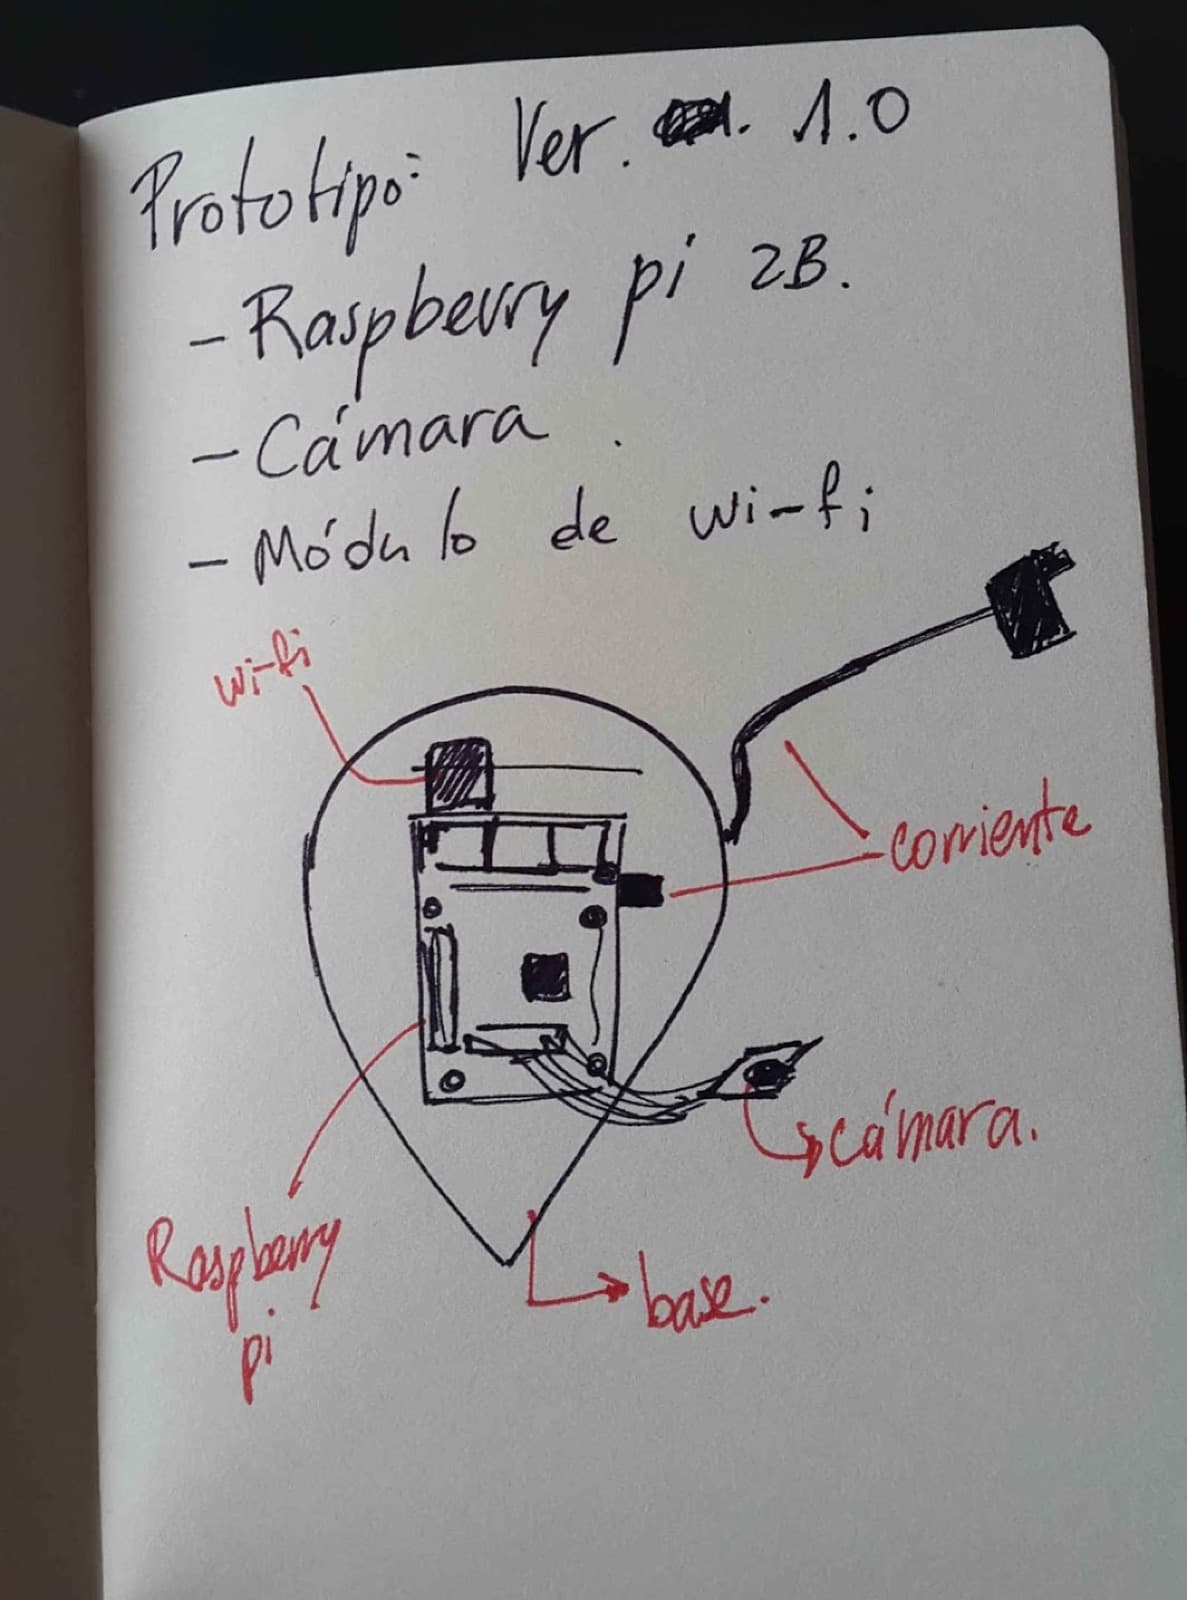 Prototipo: Ver. 1.0
- Raspberry pi 2B.
- Cámara.
- Módulo de wi-fi
wi-fi
corriente
cámara.
Raspberry
pi
base.